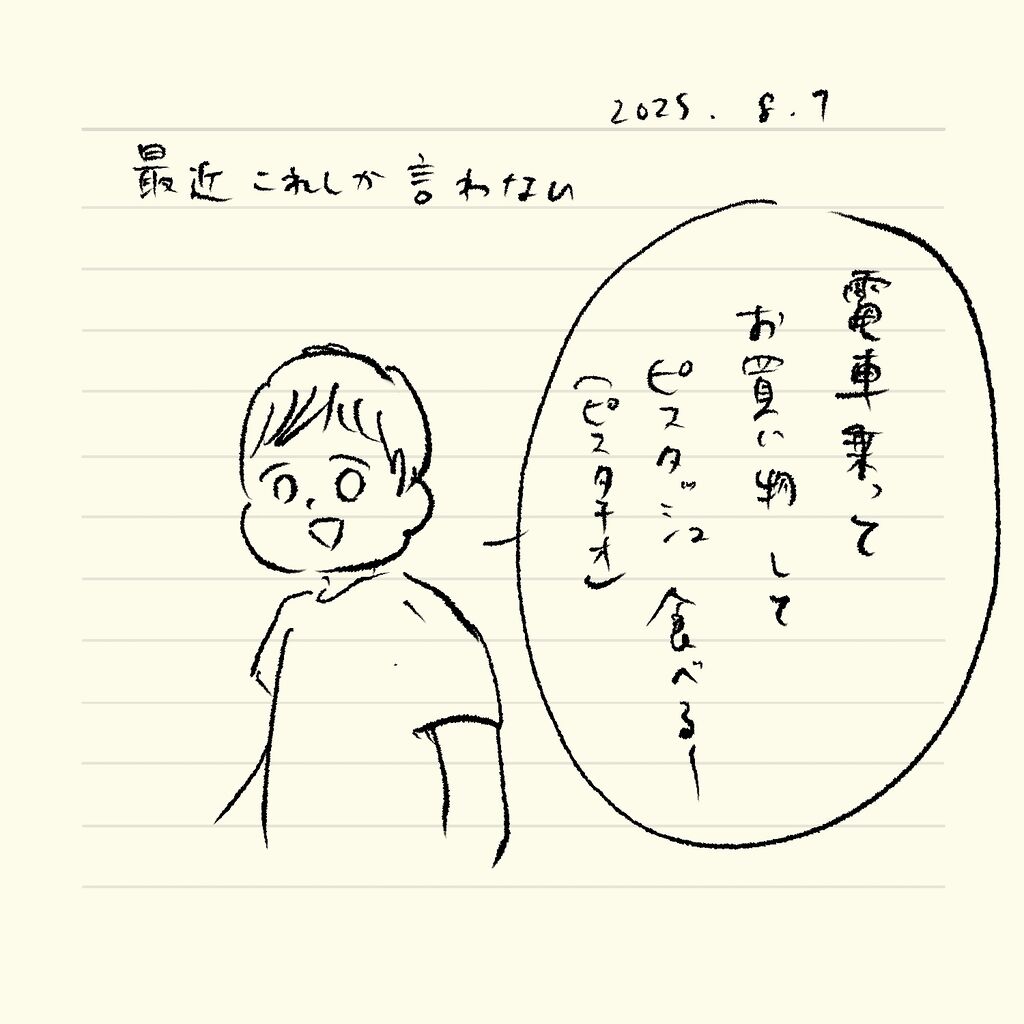 2025. 8.7
最近これしか言わない
電車乗って
お買い物して
ピスタッシュ食べるー
(ピスタチオ)